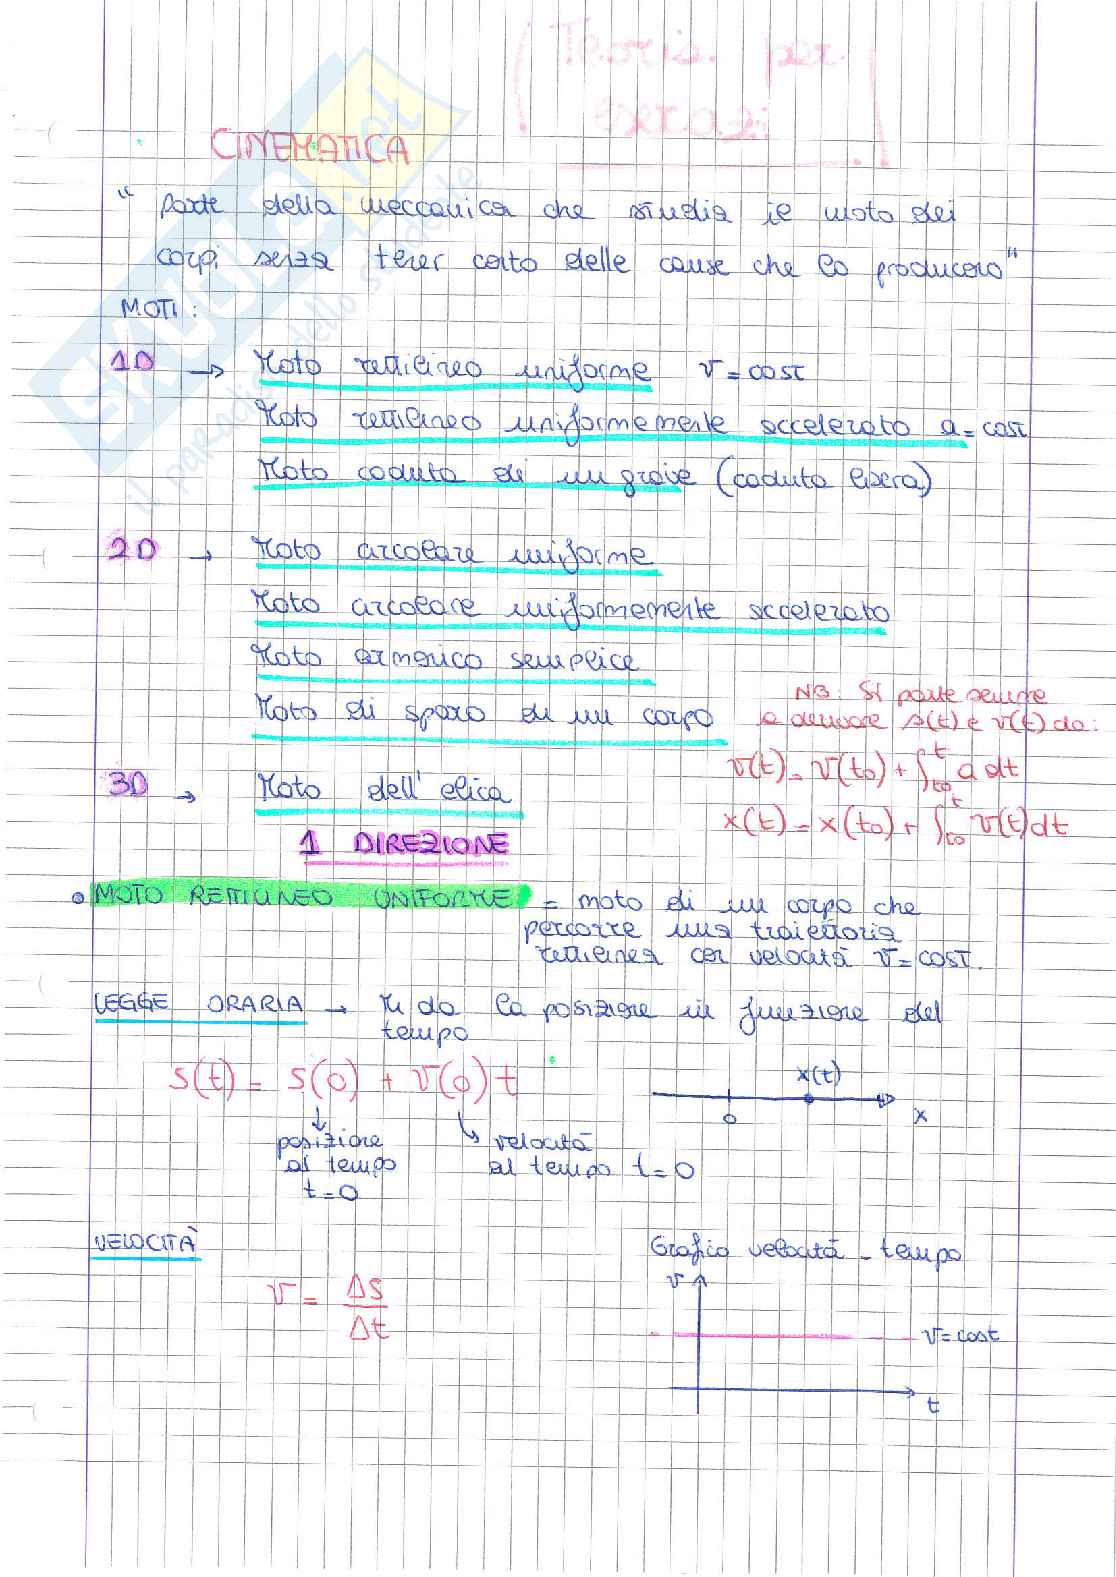 Teoria per
esercizi
CINEMATICA
" parte della meccanica che studia il moto dei
corpi senza tener conto delle cause che lo producono "
MOTI :
1D → Moto rettilineo uniforme v = cost
Moto rettilineo uniformemente accelerato a = cost
Moto caduta di un grave (caduta libera)
2D → Moto circolare uniforme
Moto circolare uniformemente accelerato
Moto armonico semplice
Moto di sparo di un corpo
NB: Si parte sempre
a derivare s(t) e v(t) da:
v(t) = v(t0) + ∫_{t0}^{t} a dt
x(t) = x(t0) + ∫_{t0}^{t} v(t) dt
3D → Moto dell' elica
1 DIREZIONE
• MOTO RETTILINEO UNIFORME = moto di un corpo che
percorre una traiettoria
rettilinea con velocità v = cost.
LEGGE ORARIA → Mi da la posizione in funzione del
tempo
s(t) = s(0) + v(0) t
posizione
al tempo
t = 0
velocità
al tempo t = 0
x(t)
0
x
VELOCITÀ
v = Δs/Δt
Grafico velocità - tempo
v
v = cost
t
SKUOLA.net
il paradiso dello studente